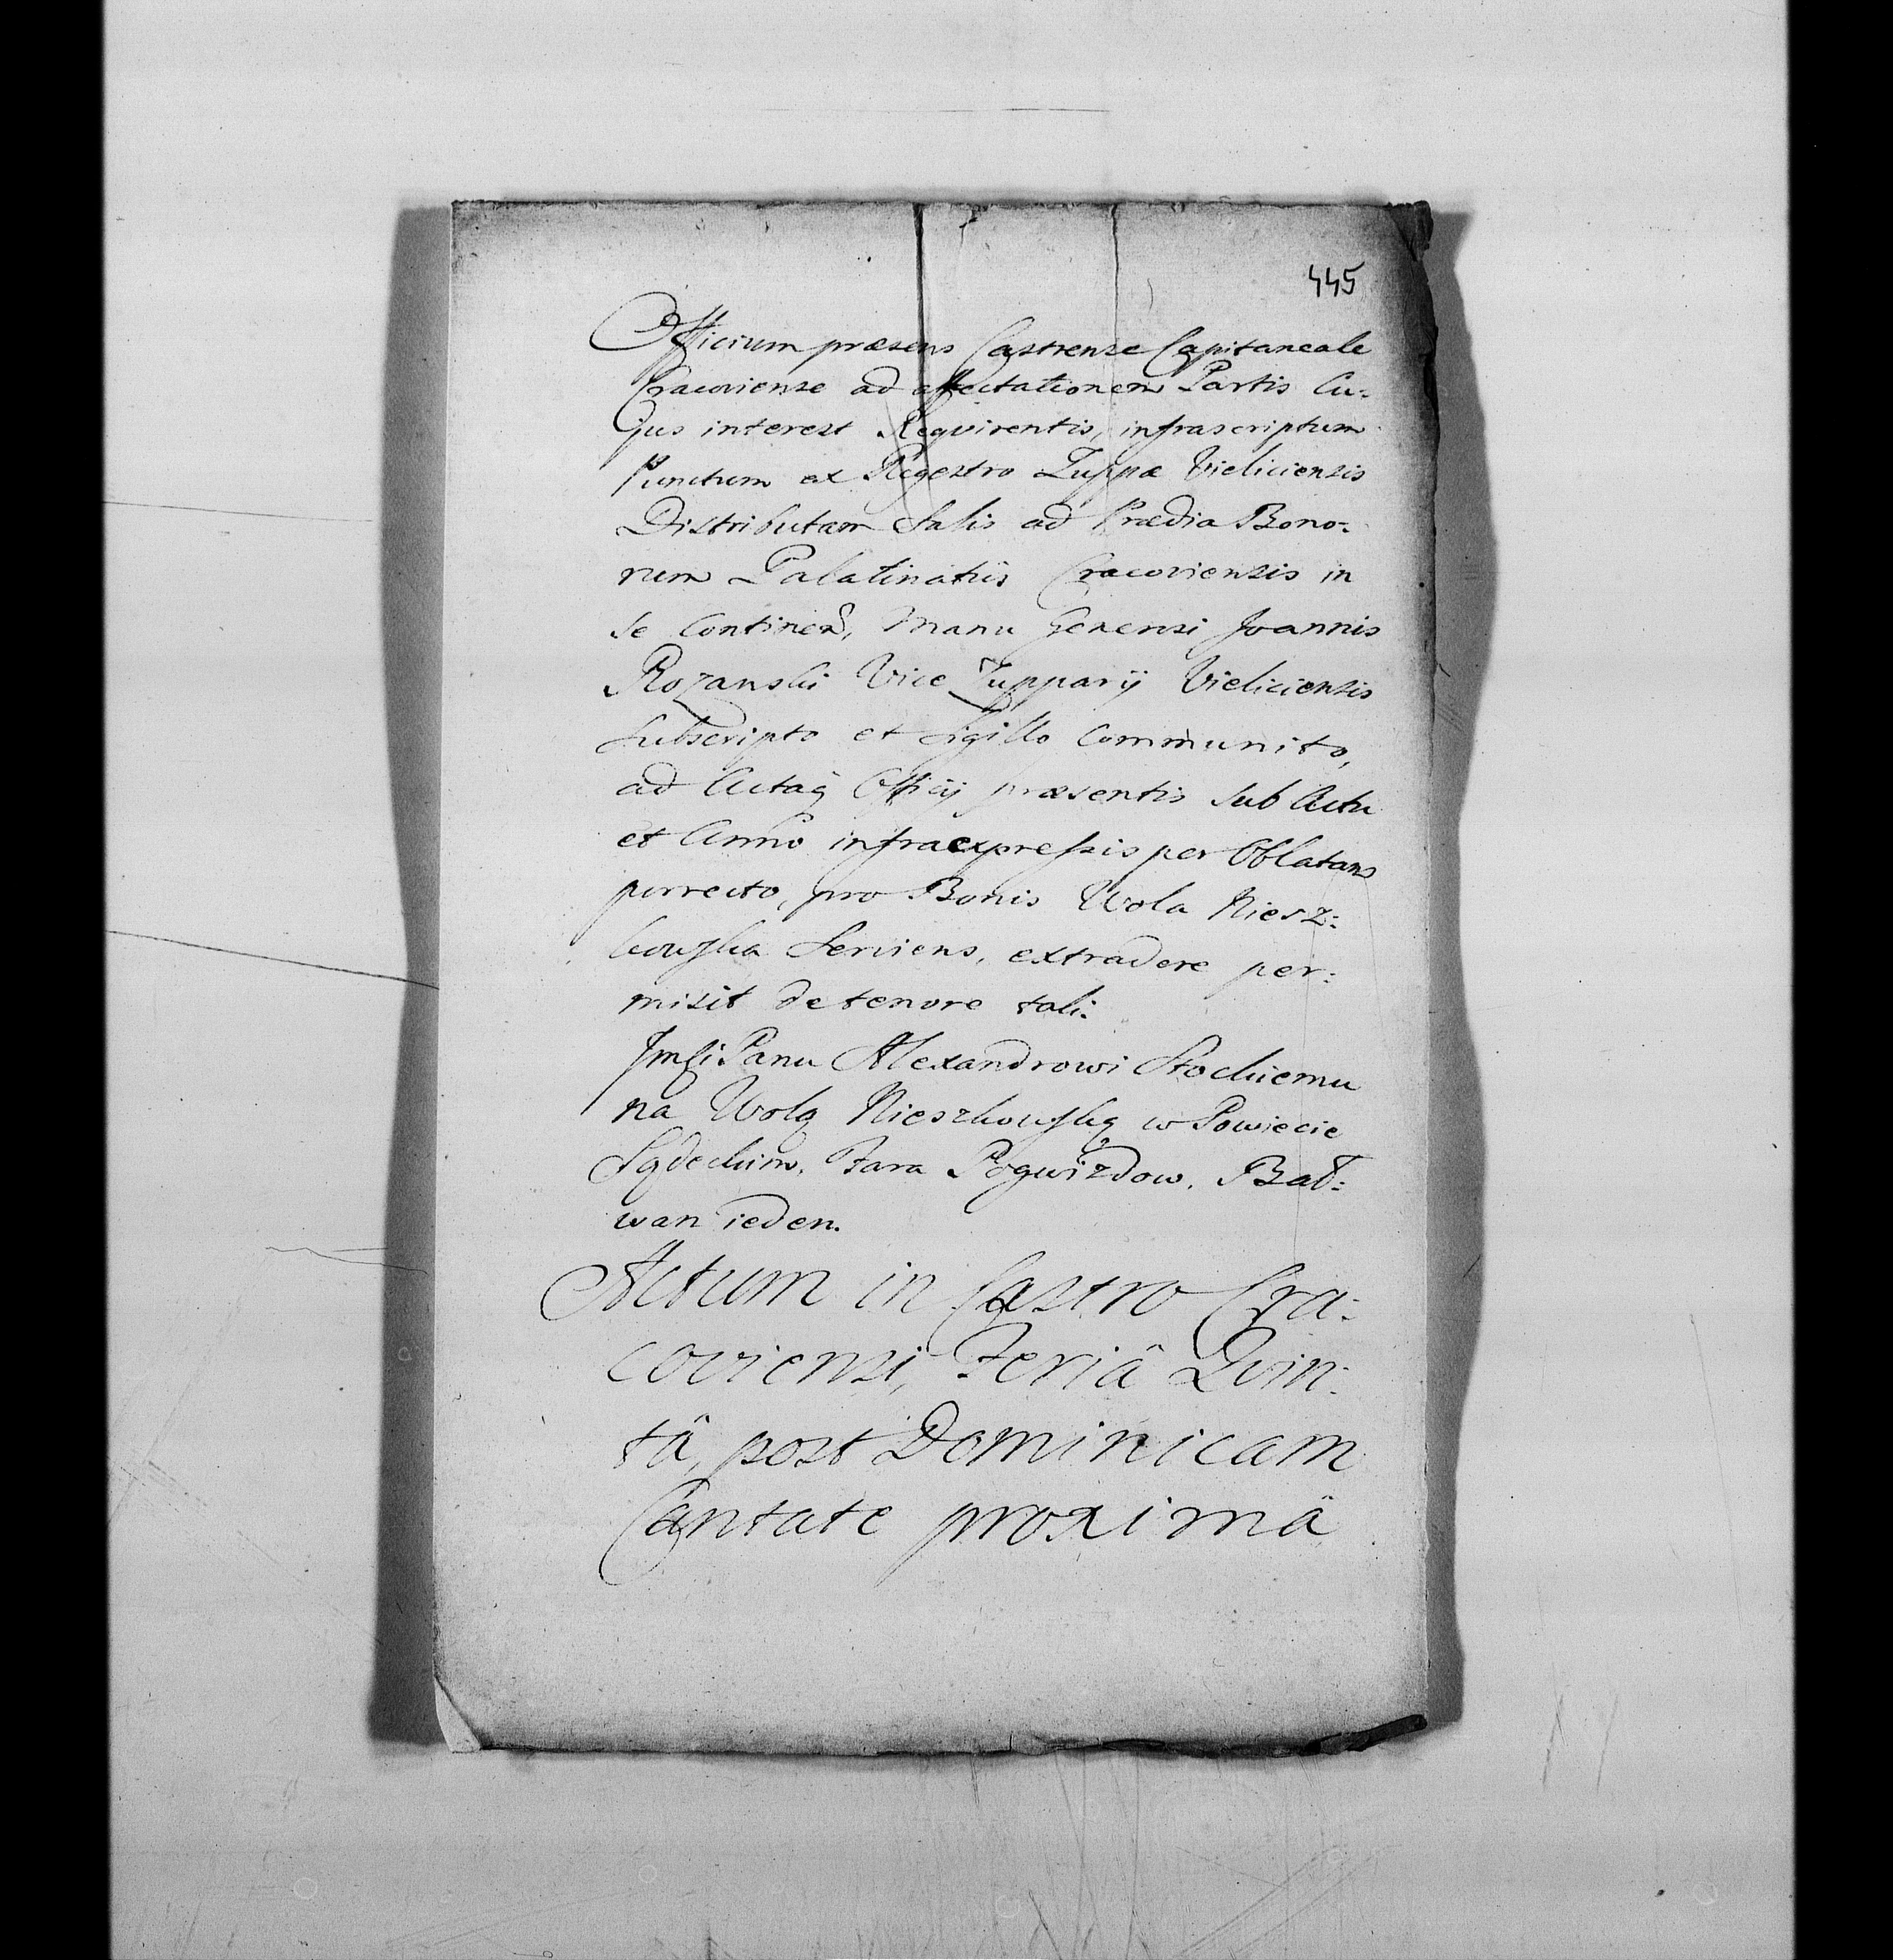 445
Officium præsens Castrense Capitaneale
Cracoviense ad affectationem Partis Cu:
jus interest Requirentis, infrascriptum
Punctum ex Regestro Zuppæ Vieliciensis
Distributam Salis ad Prædia Bono:
rum Palatinatûs Cracoviensis in
se Continen, Manu Generosi Joannis
Rozanski Vice Zupparÿ Vieliciensis
Subscripto et Sigillo Communito,
ad Acta Officÿ præsentis sub Actu
et Anno infraexpressis per Oblatam
porrecto, pro Bonis Wola Niesz:
kowska Serviens, extradere per:
misit de tenore tali.
Jmści Panu Alexandrowi Stockiemu
na Wolą Nieszkowską w Powiecie
Sądeckim. Fara Pogwizdow. Bał:
wan ieden.
Actum in Castro Cra:
coviensi, Feriâ Quin:
tâ, post Dominicam
Cantate proximâ